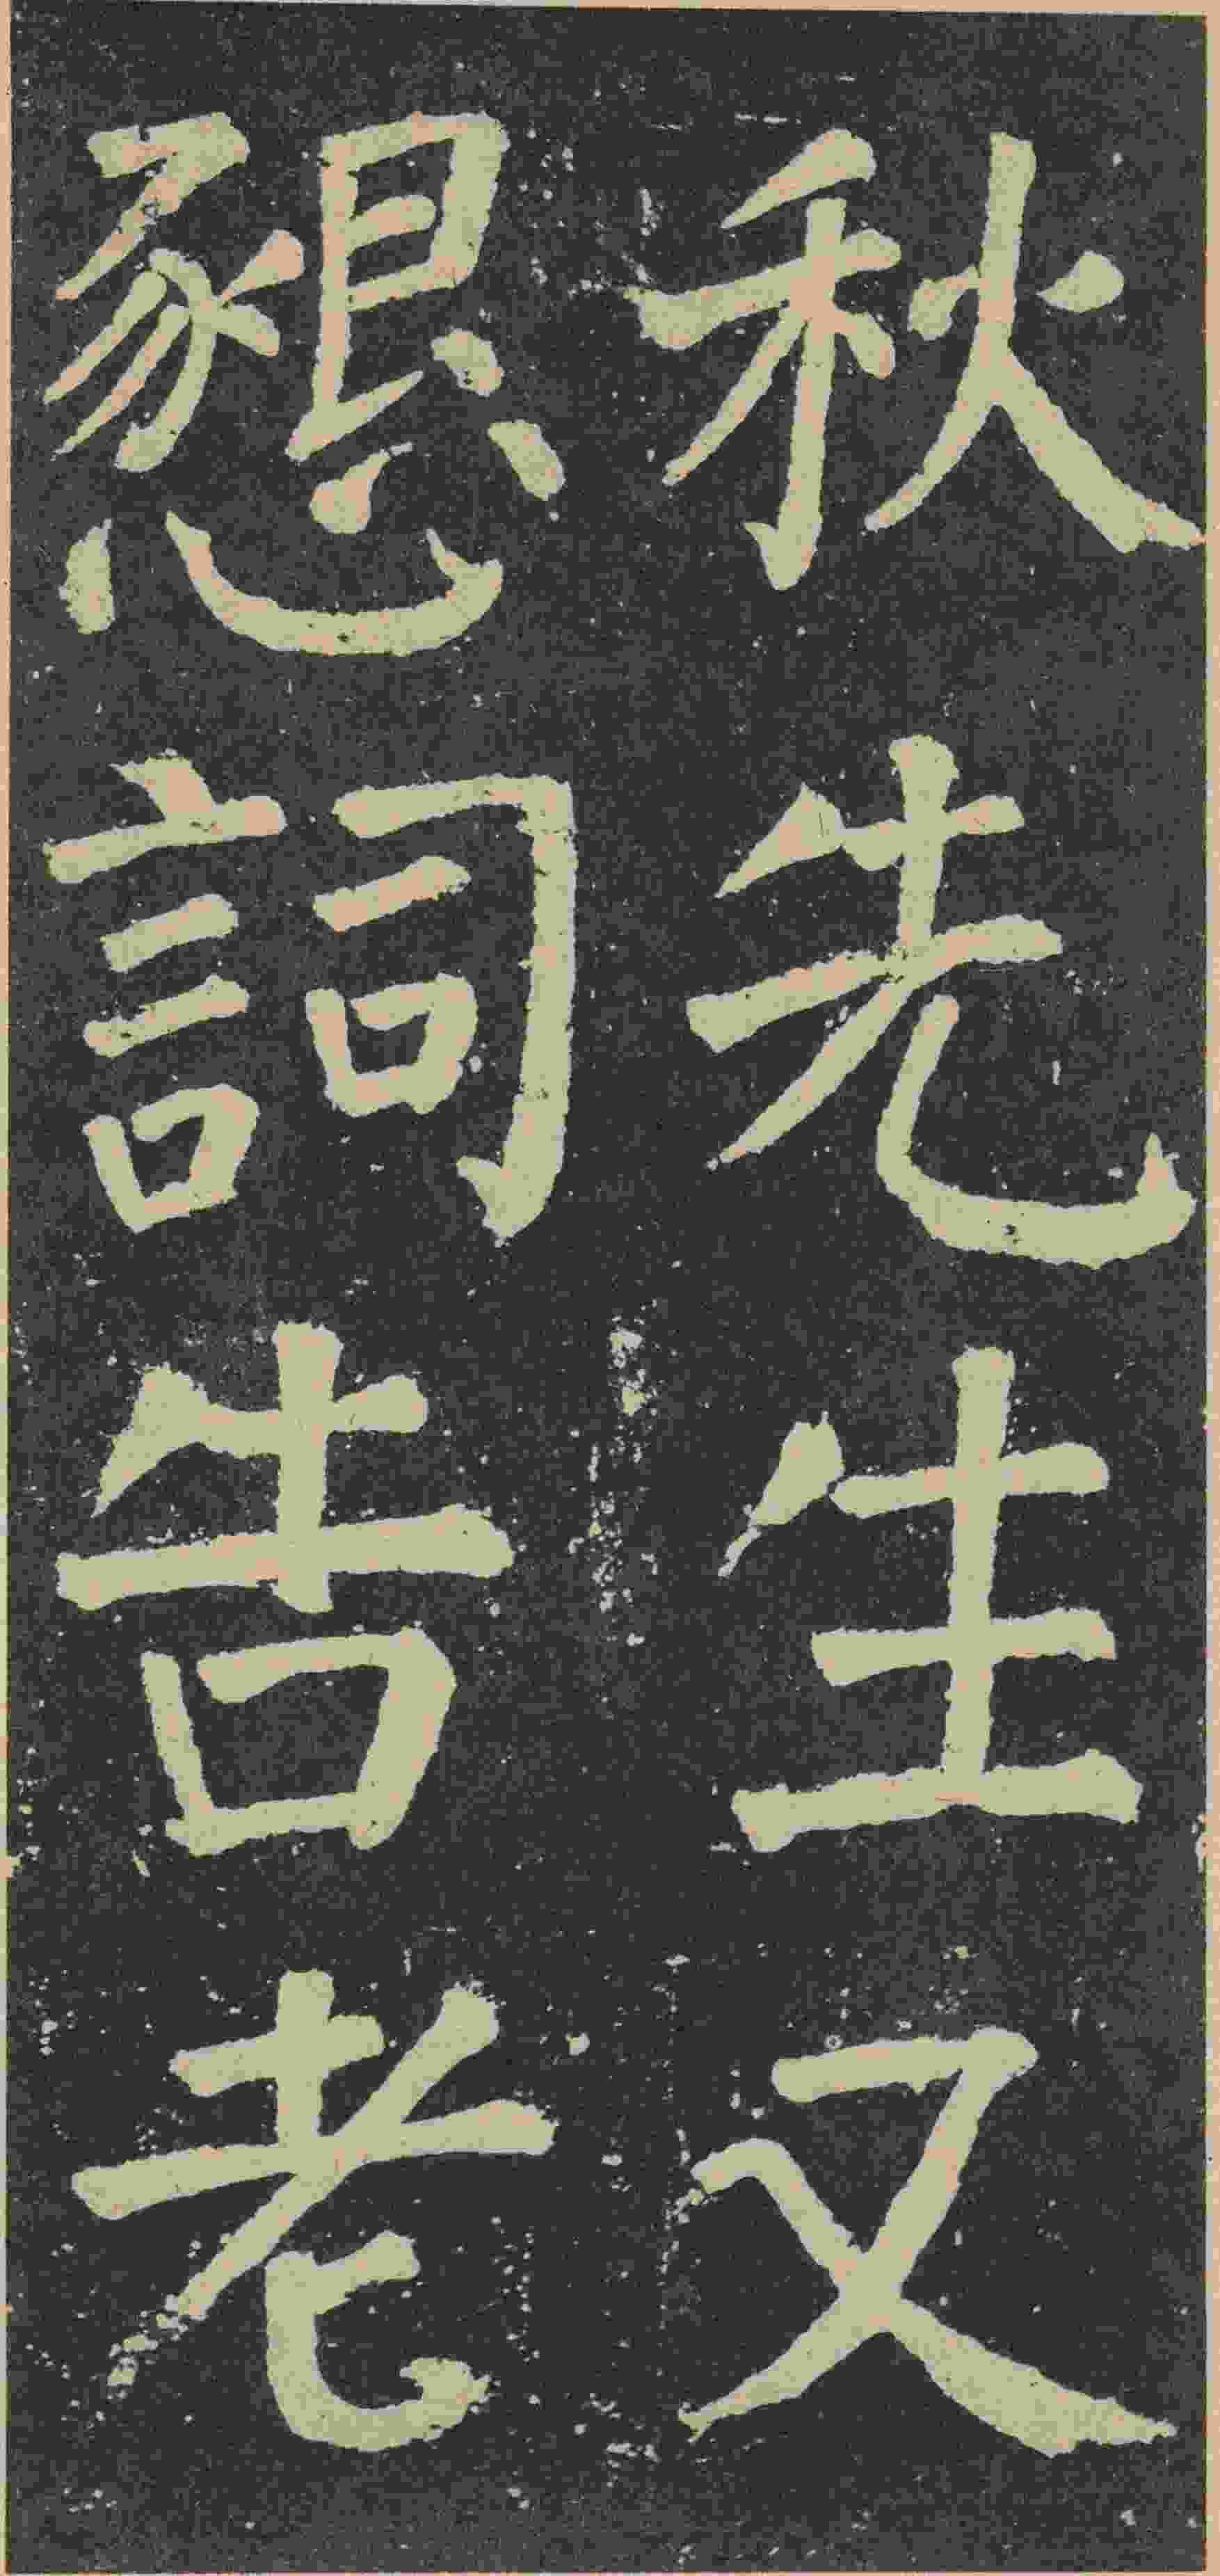 秋先生又
懇詞告老